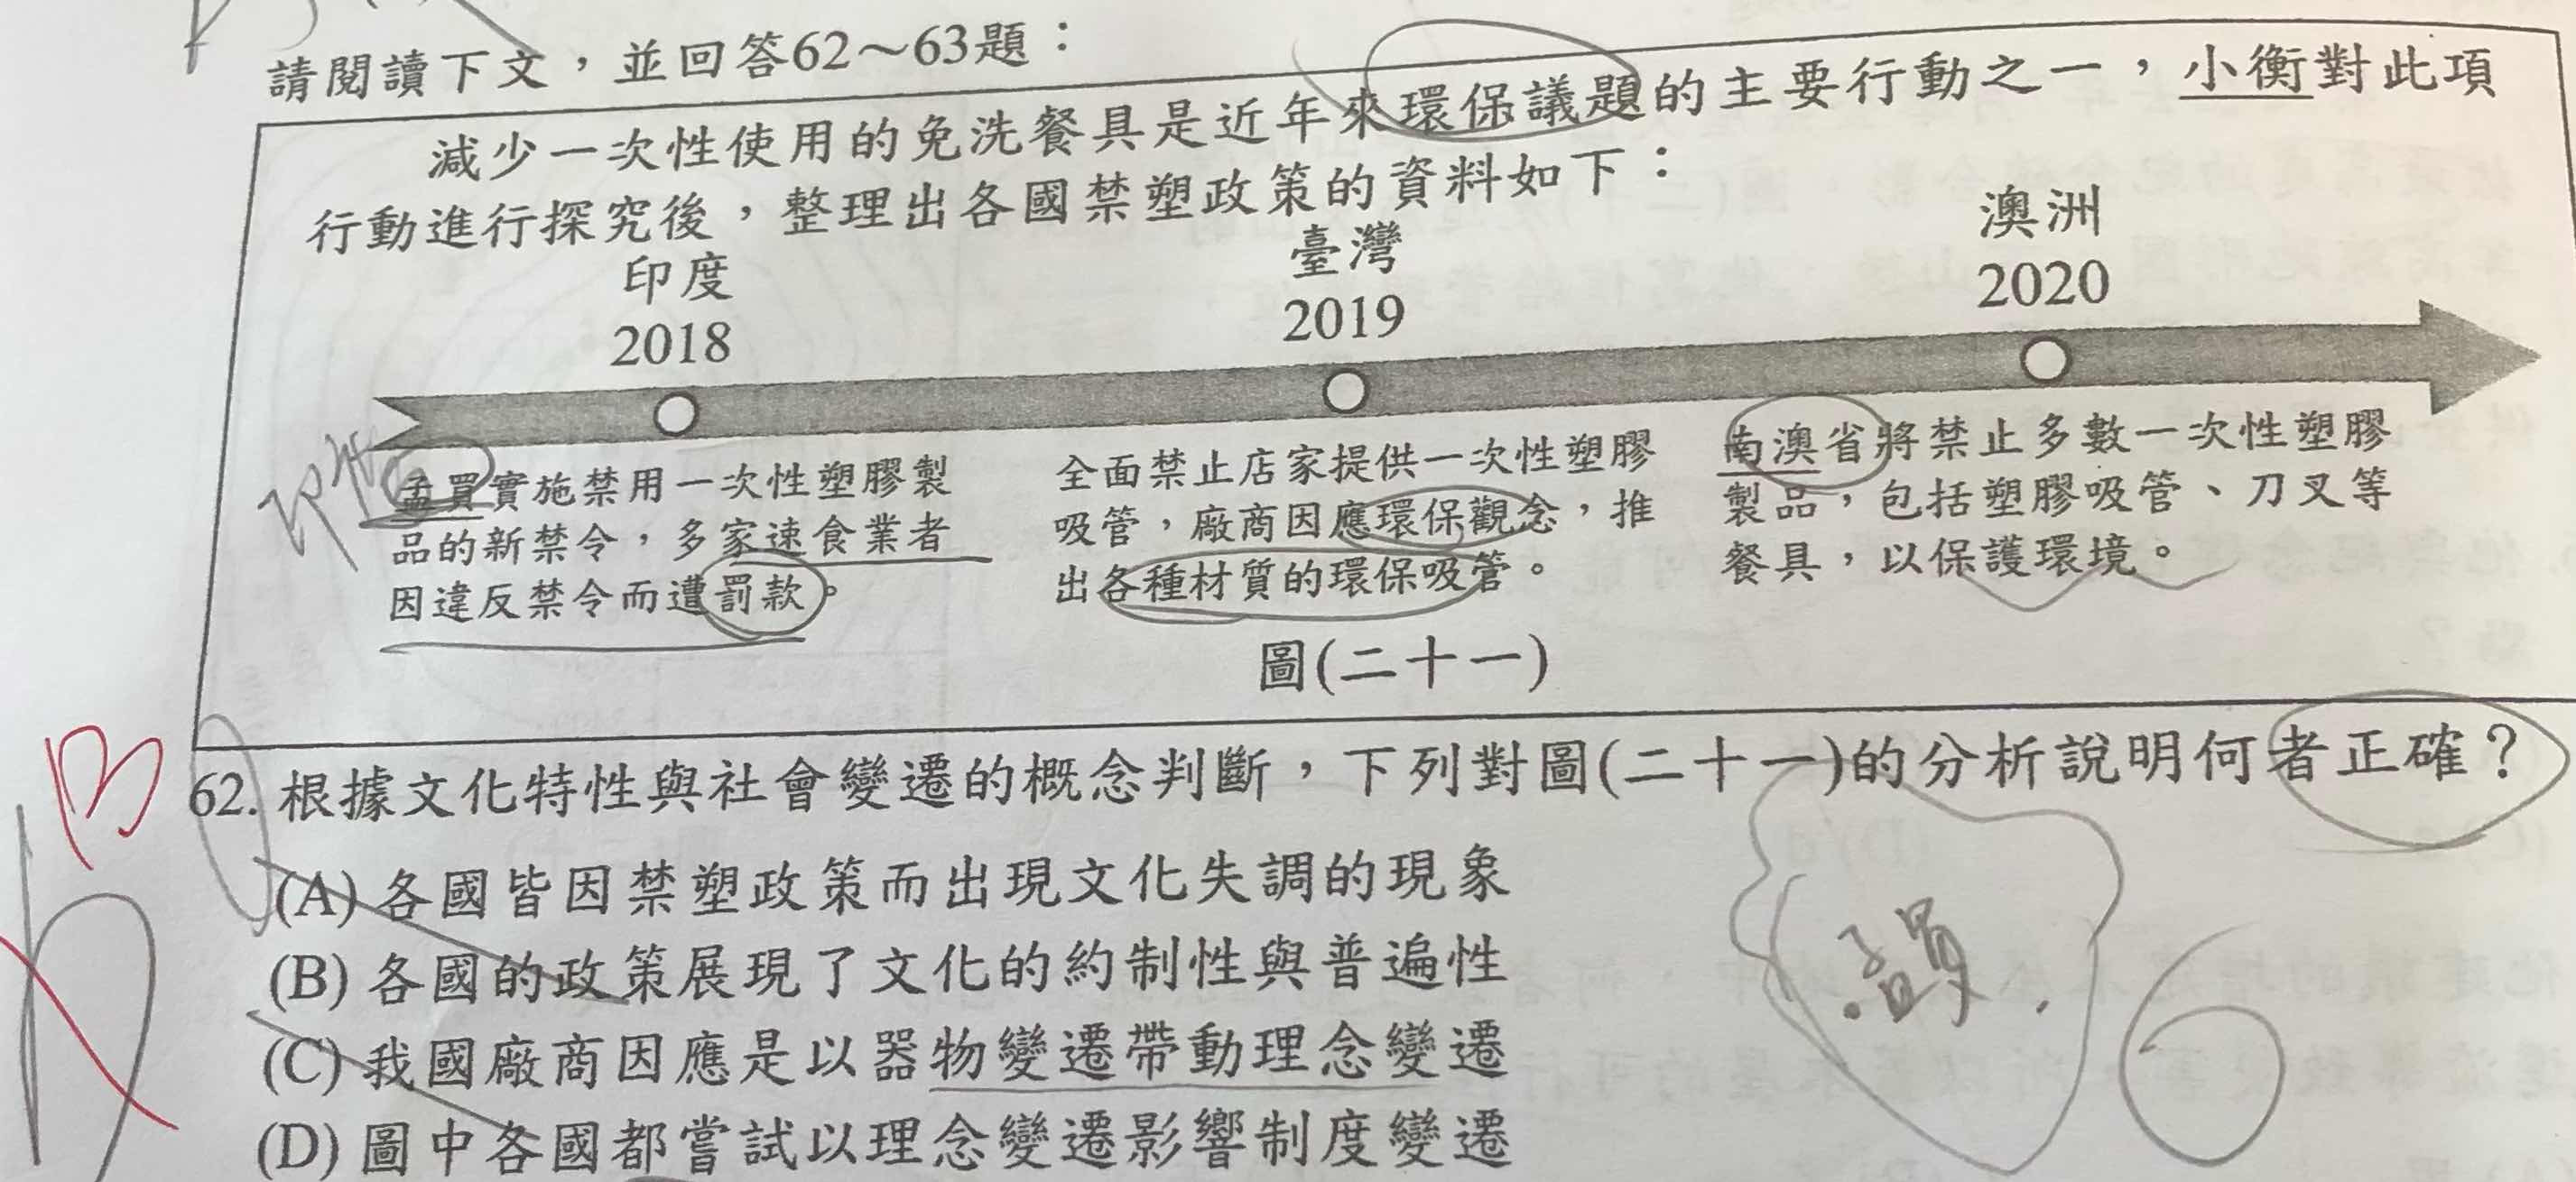 請閱讀下文，並回答62～63題：
減少一次性使用的免洗餐具是近年來環保議題的主要行動之一，小衡對此項
行動進行探究後，整理出各國禁塑政策的資料如下：
印度
2018
臺灣
2019
澳洲
2020
孟買實施禁用一次性塑膠製
品的新禁令，多家速食業者
因違反禁令而遭罰款。
全面禁止店家提供一次性塑膠
吸管，廠商因應環保觀念，推
出各種材質的環保吸管。
南澳省將禁止多數一次性塑膠
製品，包括塑膠吸管、刀叉等
餐具，以保護環境。
圖(二十一)
B
62. 根據文化特性與社會變遷的概念判斷，下列對圖(二十一)的分析說明何者正確？
(A) 各國皆因禁塑政策而出現文化失調的現象
(B) 各國的政策展現了文化的約制性與普遍性
(C) 我國廠商因應是以器物變遷帶動理念變遷
(D) 圖中各國都嘗試以理念變遷影響制度變遷
孟買